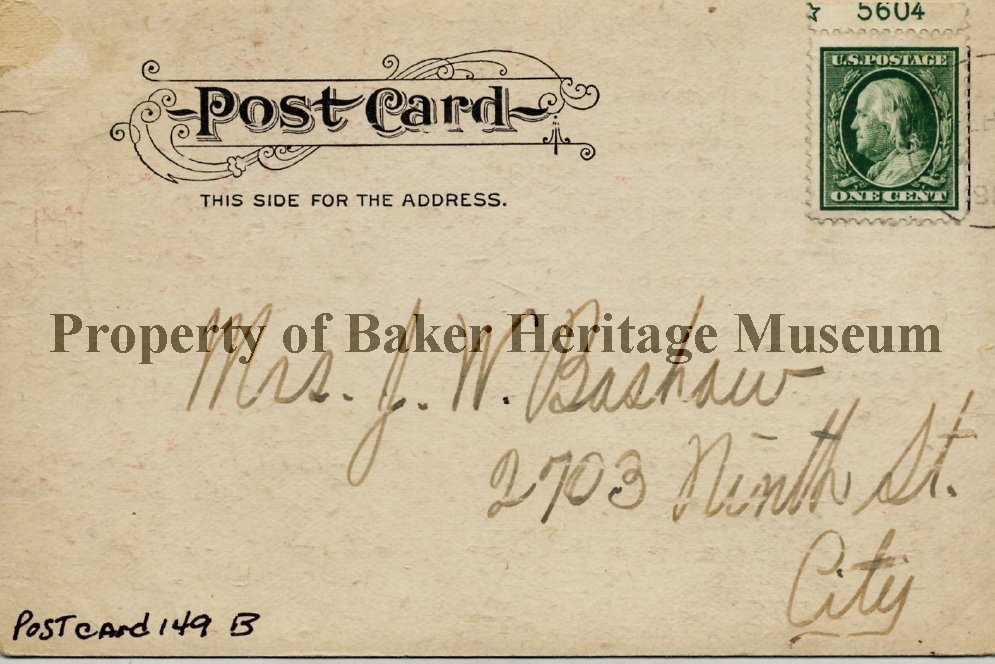 ☆ 5604
U.S. POSTAGE
ONE CENT
Post Card
THIS SIDE FOR THE ADDRESS.
Property of Baker Heritage Museum
Mrs. J. W. Bashaw
2703 Ninth St.
City
POSTCARD 149 B